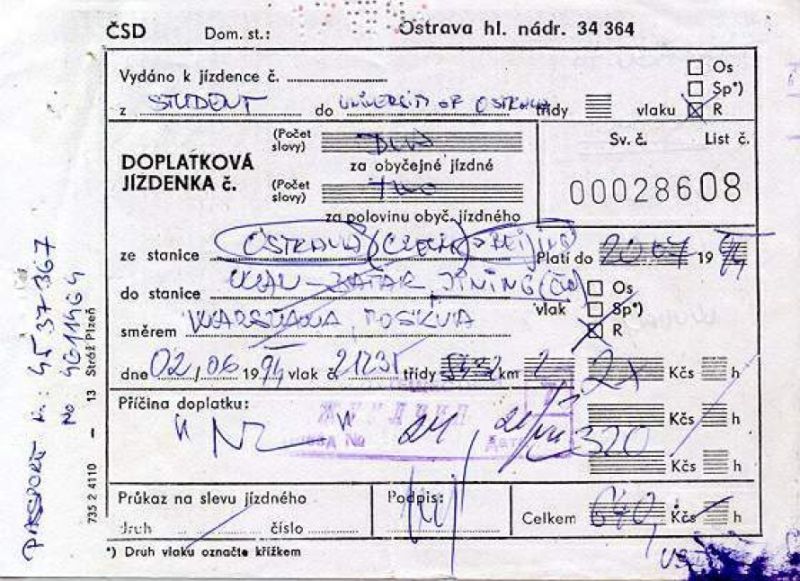 ČSD Dom. st.: Ostrava hl. nádr. 34 364
Vydáno k jízdence č.
z STUDENT do UNIVERSITY OF OSTRAVA třídy vlaku
Os
Sp*)
R
DOPLATKOVÁ JÍZDENKA č.
(Počet slovy) DVA
za obyčejné jízdné
(Počet slovy) TWO
za polovinu obyč. jízdného
Sv. č. List č.
00028608
ze stanice OSTRAVA (CZECH) Platí do 1994
do stanice ULAN-BATAR, JINING
směrem WARSZAWA, MOSKVA
vlak
Os
Sp*)
R
dne 02/06 1994 vlak č. třídy km 2 2x Kčs h
Příčina doplatku:
Kčs h
320
Kčs h
Průkaz na slevu jízdného
druh číslo
Podpis:
Celkem 640, Kčs h
*) Druh vlaku označte křížkem
735 2 4110 – 13 Stráž Plzeň
PASSPORT N.: 4537367
No 4G11464